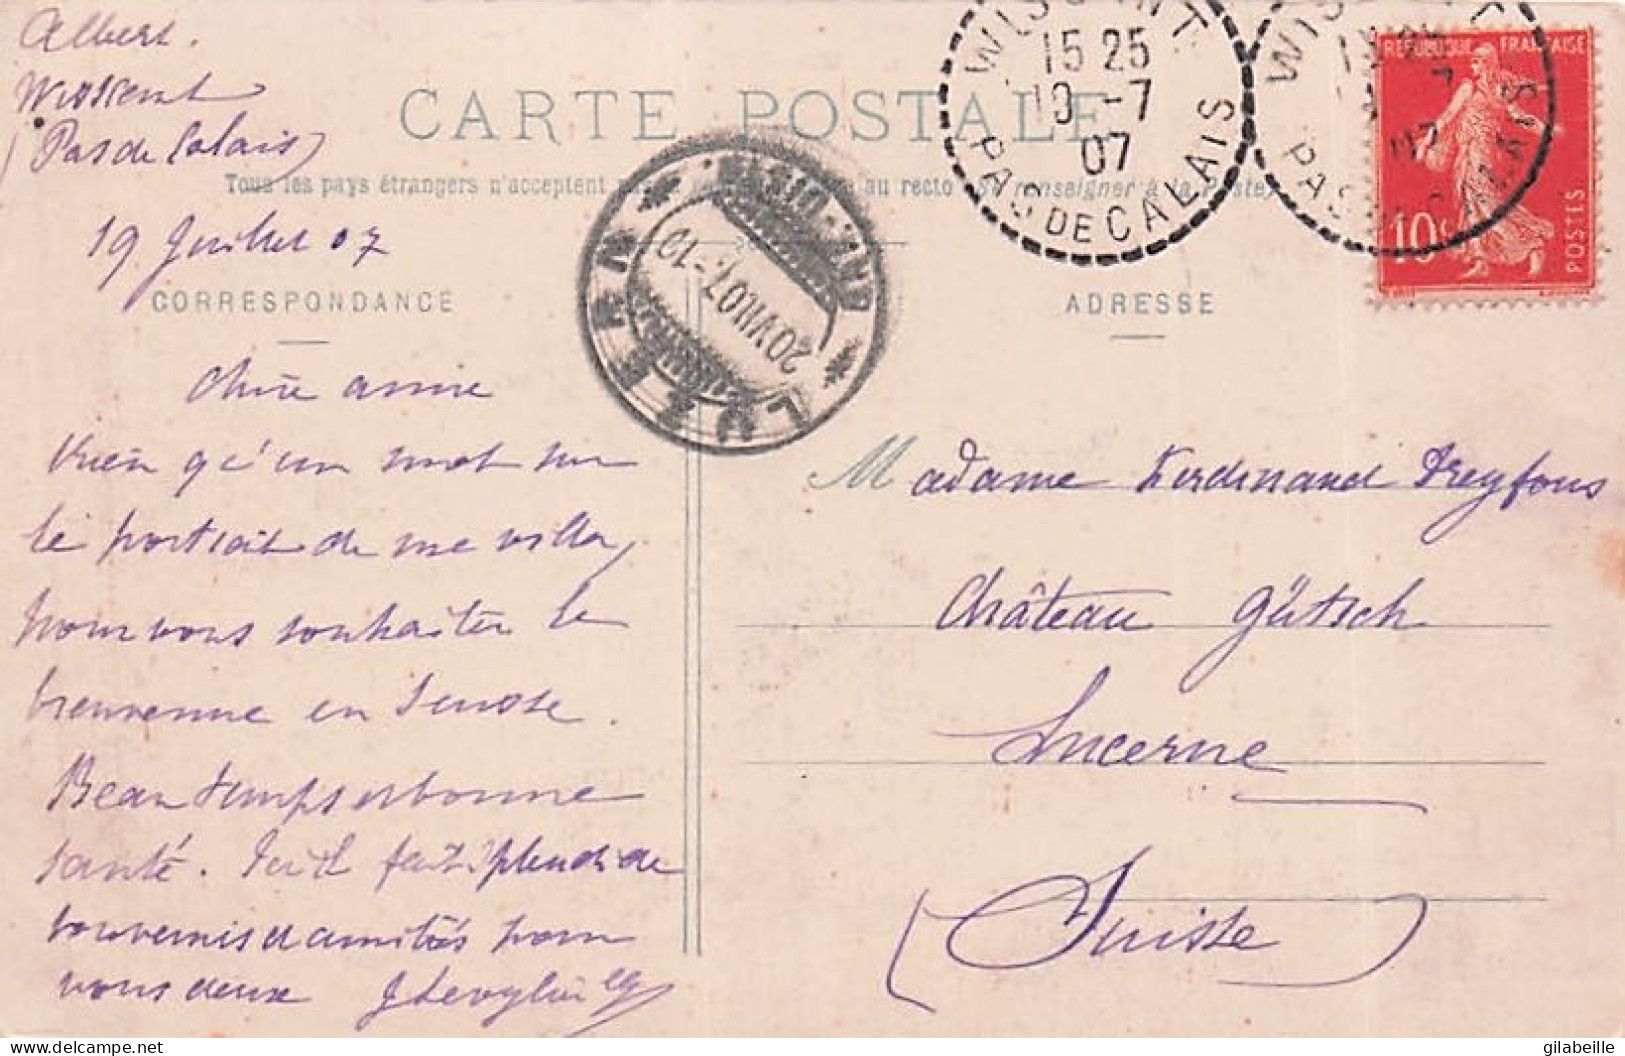 Albert.
Wissent
(Pas de Calais)
19 Juillet 07
CARTE POSTALE
Tous les pays étrangers n'acceptent pas au recto (Se renseigner à la Poste)
CORRESPONDANCE
ADRESSE
Chère amie
Rien qu'un mot sur
le portrait de ma villa,
pour vous souhaiter la
bienvenue en Suisse.
Beau temps et bonne
santé.
souvenirs et amitiés pour
vous deux
Madame Ferdinand Dreyfous
Château Gütsch
Lucerne
(Suisse)
WISSANT
15 25
19 -7
07
PAS DE CALAIS
WISSANT
PAS DE CALAIS
REPUBLIQUE FRANÇAISE
10c
POSTES
LUZERN
20.VII.07.-10
delcampe.net
gilabeille